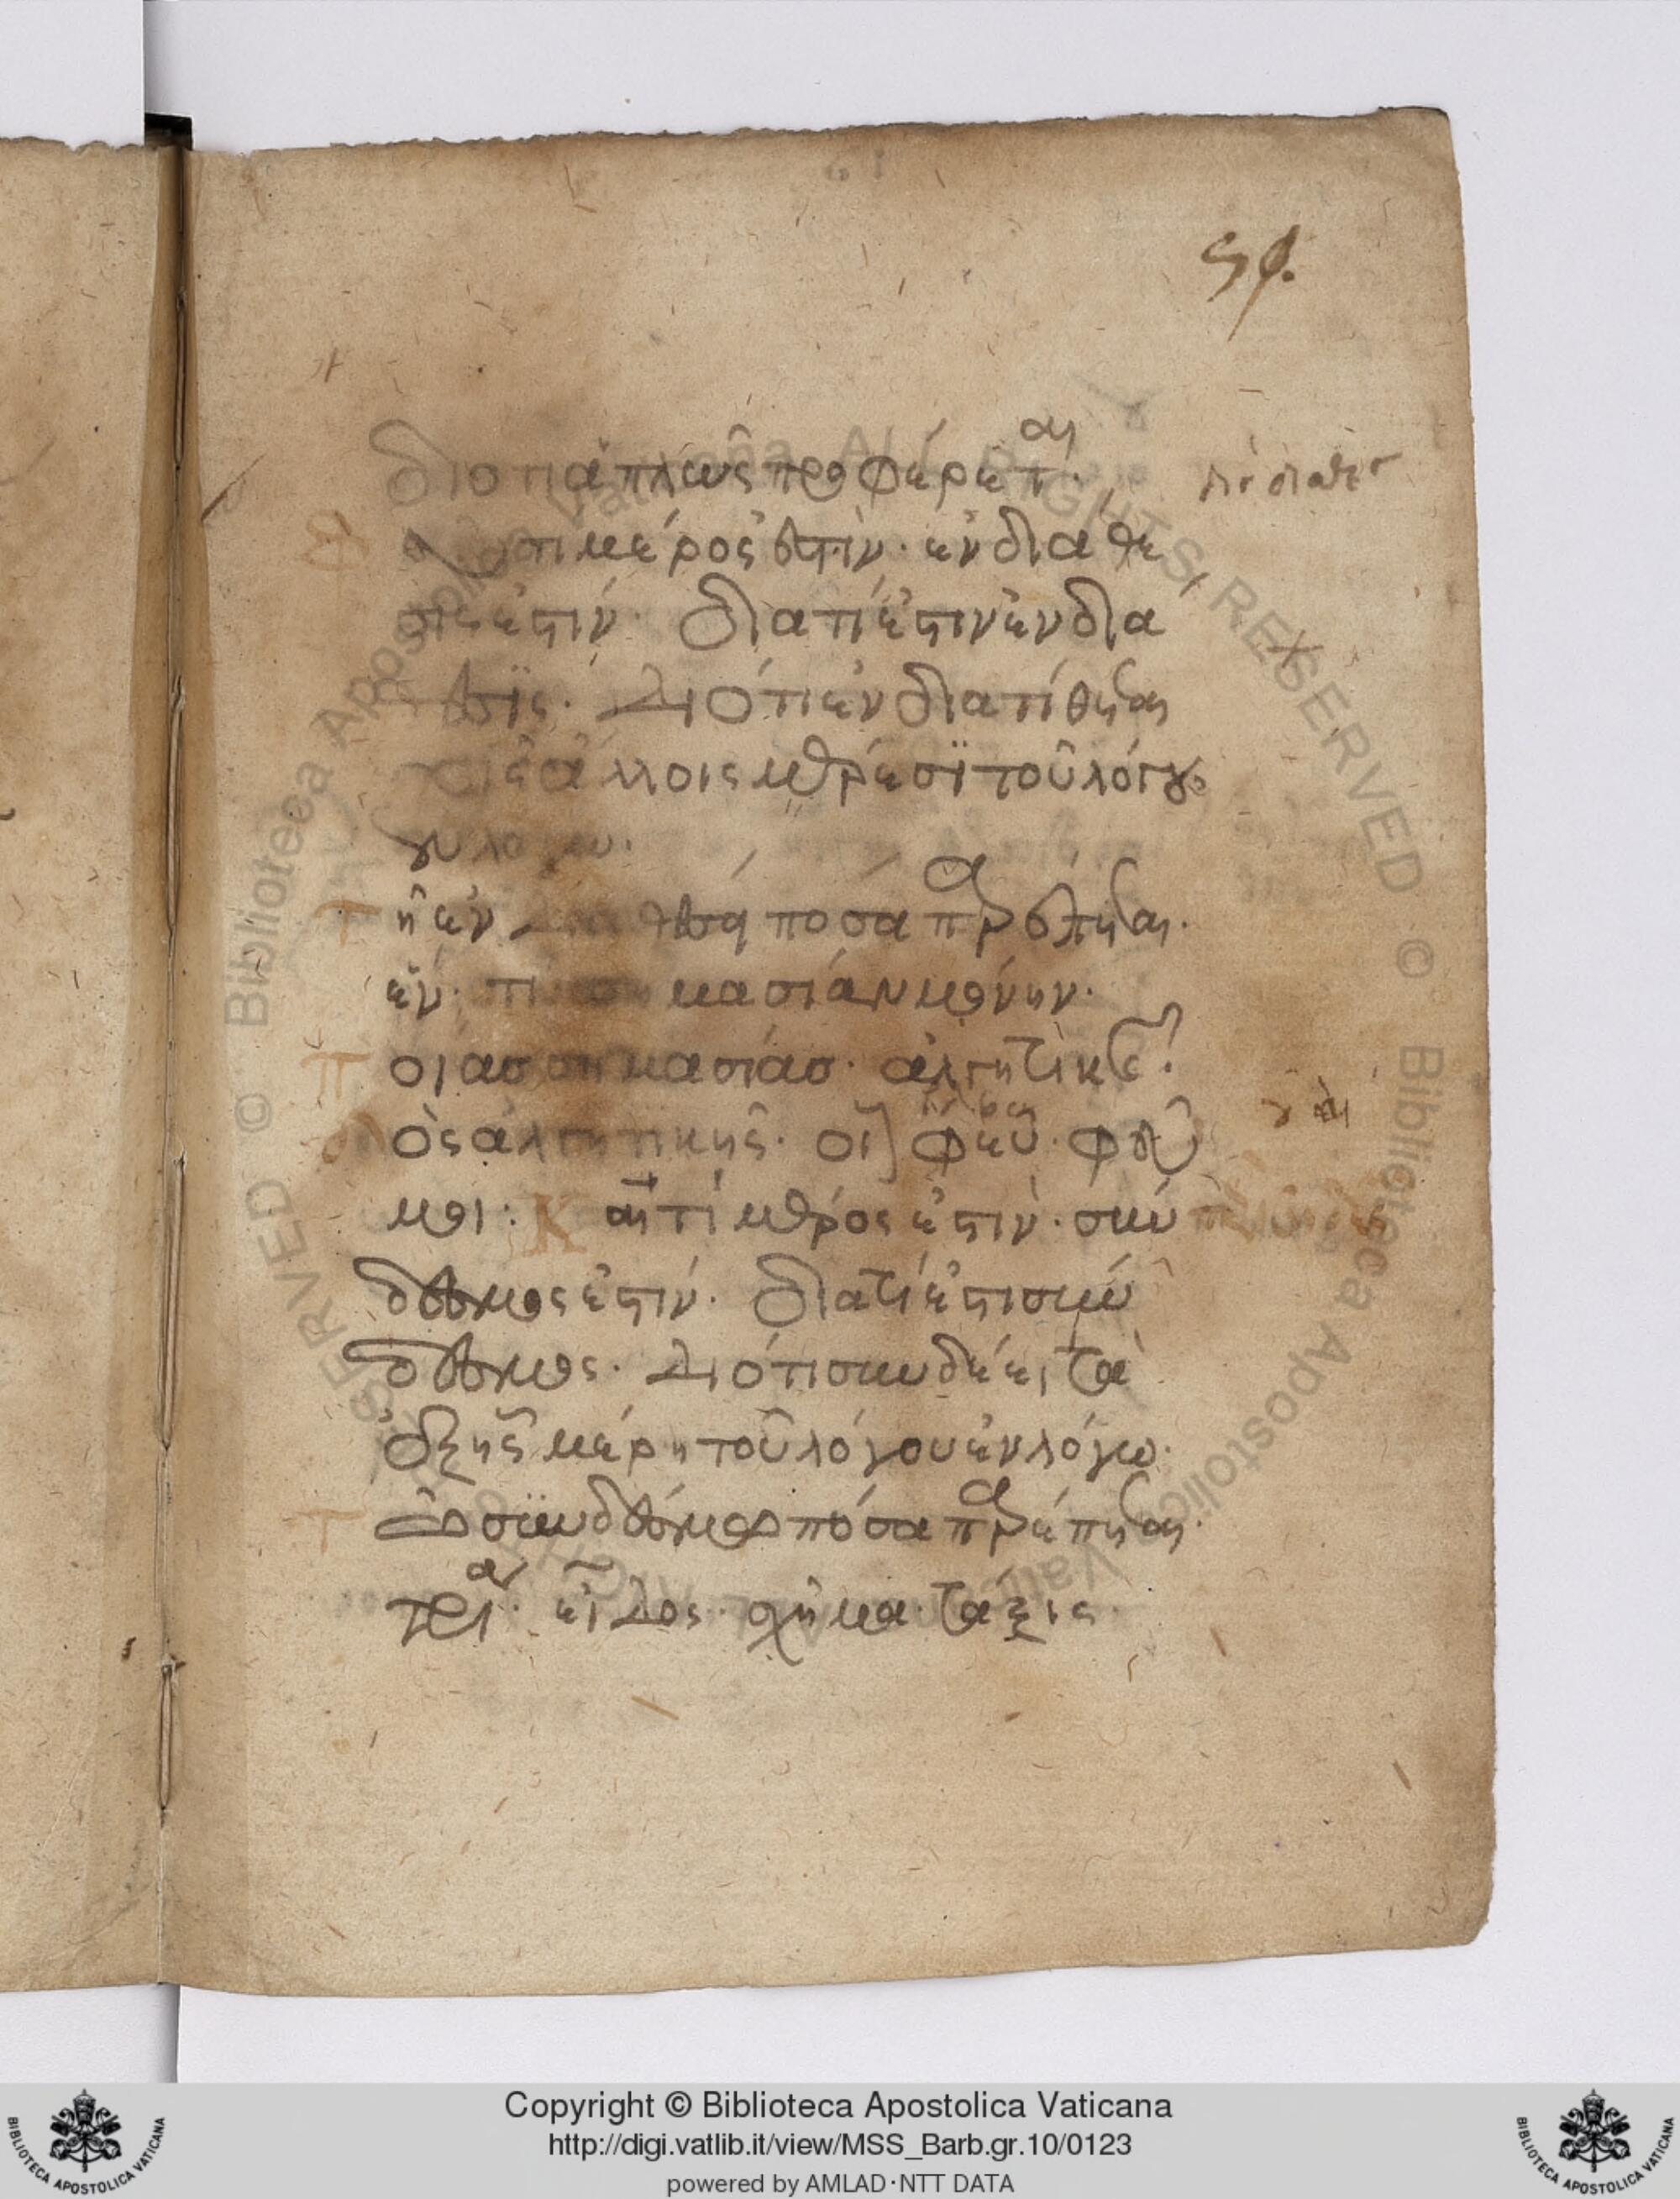 59.
διότι ἁπλῶς προφέρεται.
τί μέρος ἐστίν. ἐνδιάθε
σις ἐστίν. διατί ἐστιν ἐνδιά
θεσϊς. Διότι ἐνδιατίθεται
τοῖς ἄλλοις μέρεσϊ τοῦ λόγου
τῆ ἐν θέσει πόσα παρέπεται.
ἕν. σημασίαν μόνην.
Ποίας σημασίας. ἀλγητικῆς?
ὃς ἀλγητικῆς. οἷον φεῦ. φεῦ
μοι: Καὶ τί μέρος ἐστίν. σύν
δεσμος ἐστίν. διατί ἐστι σύν
δεσμος. Διότι συνδέει τὰ
ἑξῆς μέρη τοῦ λόγου ἐν λόγω.
Τῶ σϋνδέσμω πόσα παρέπεται.
τρία. εἶδος. σχῆμα. τάξις.
Copyright © Biblioteca Apostolica Vaticana
http://digi.vatlib.it/view/MSS_Barb.gr.10/0123
powered by AMLAD·NTT DATA
BIBLIOTECA APOSTOLICA VATICANA
BIBLIOTECA APOSTOLICA VATICANA